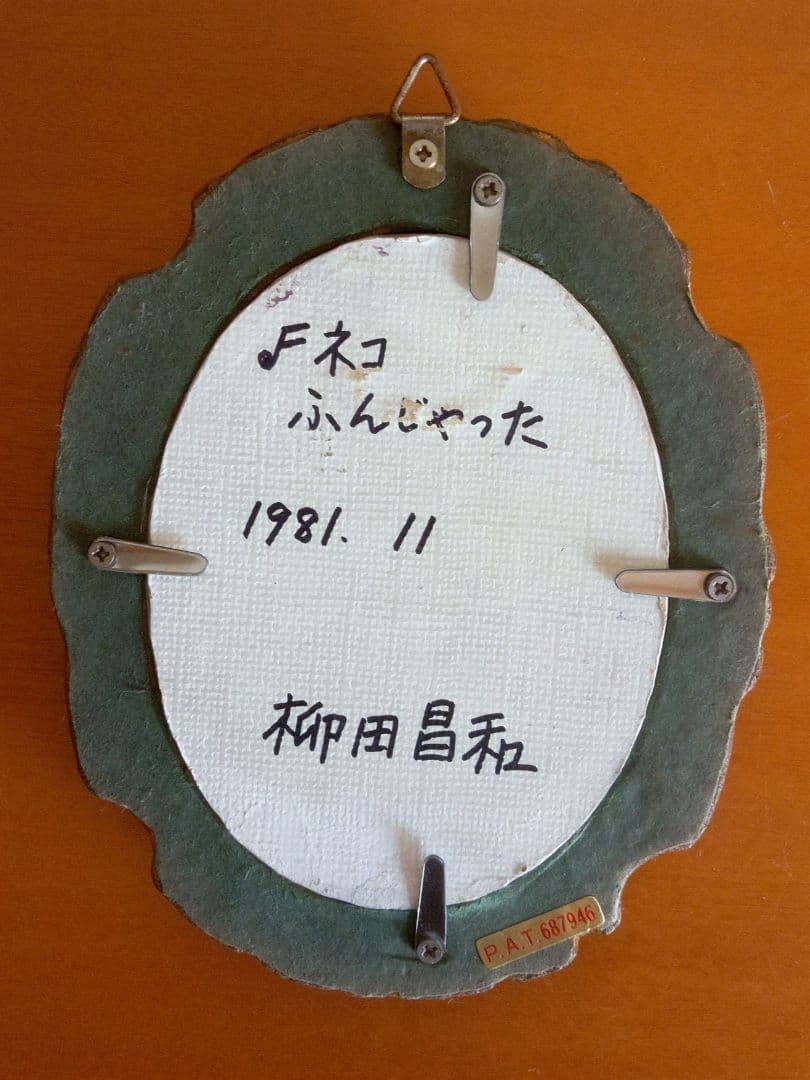 ♬ネコ
ふんじゃった
1981. 11
柳田昌和
P.A.T.687946